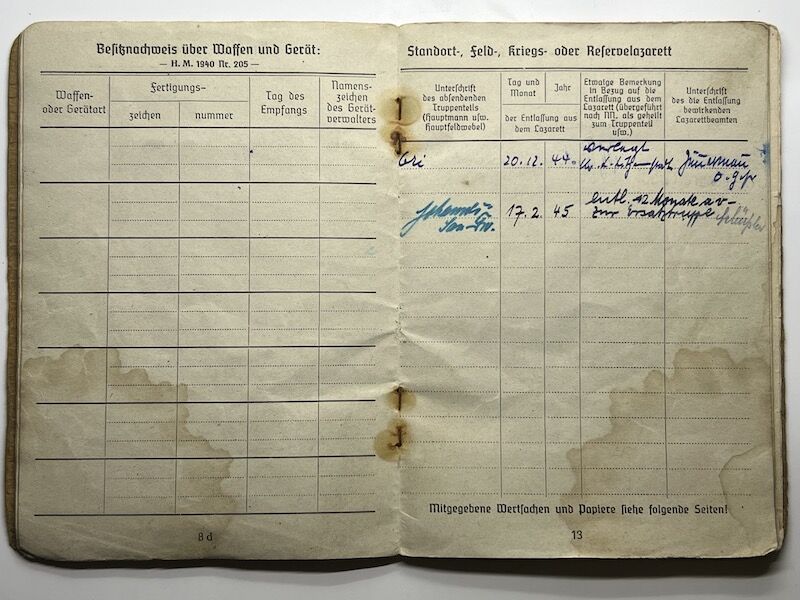 Besitznachweis über Waffen und Gerät:
— H. M. 1940 Nr. 205 —
Waffen-
oder Gerätart
Fertigungs-
zeichen
nummer
Tag des
Empfangs
Namens-
zeichen
des Gerät-
verwalters
8 d
Standort-, Feld-, Kriegs- oder Reservelazarett
Unterschrift
des absendenden
Truppenteils
(Hauptmann usw.
Hauptfeldwebel)
Tag und
Monat
Jahr
der Entlassung aus
dem Lazarett
Etwaige Bemerkung
in Bezug auf die
Entlassung aus dem
Lazarett (übergeführt
nach NN, als geheilt
zum Truppenteil
usw.)
Unterschrift
des die Entlassung
bewirkenden
Lazarettbeamten
verlegt
20. 12. 44.
O. Gefr
entl. 12 Monate av-
17. 2. 45 zur Ersatztruppe
Mitgegebene Wertsachen und Papiere siehe folgende Seiten!
13